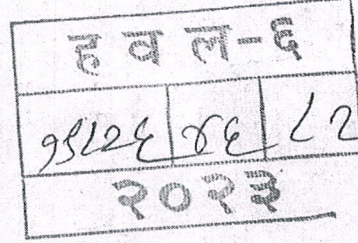 ह व ल-६
१५८२६ ४६ ८२
२०२३